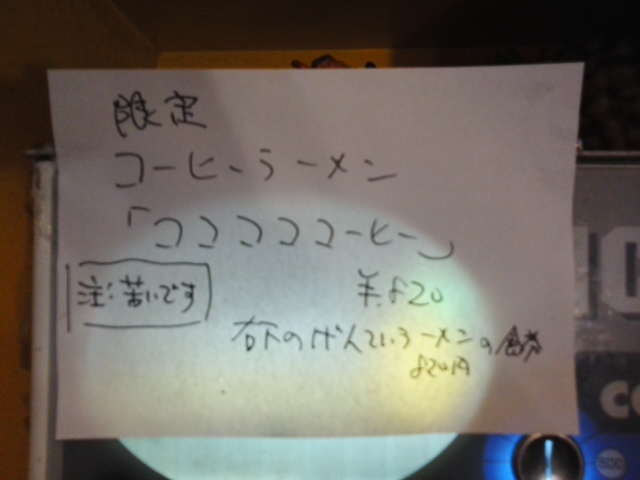 限定
コーヒーラーメン
「コココココーヒー」
注:苦いです
¥820
右下のげんていラーメンの食券
820円